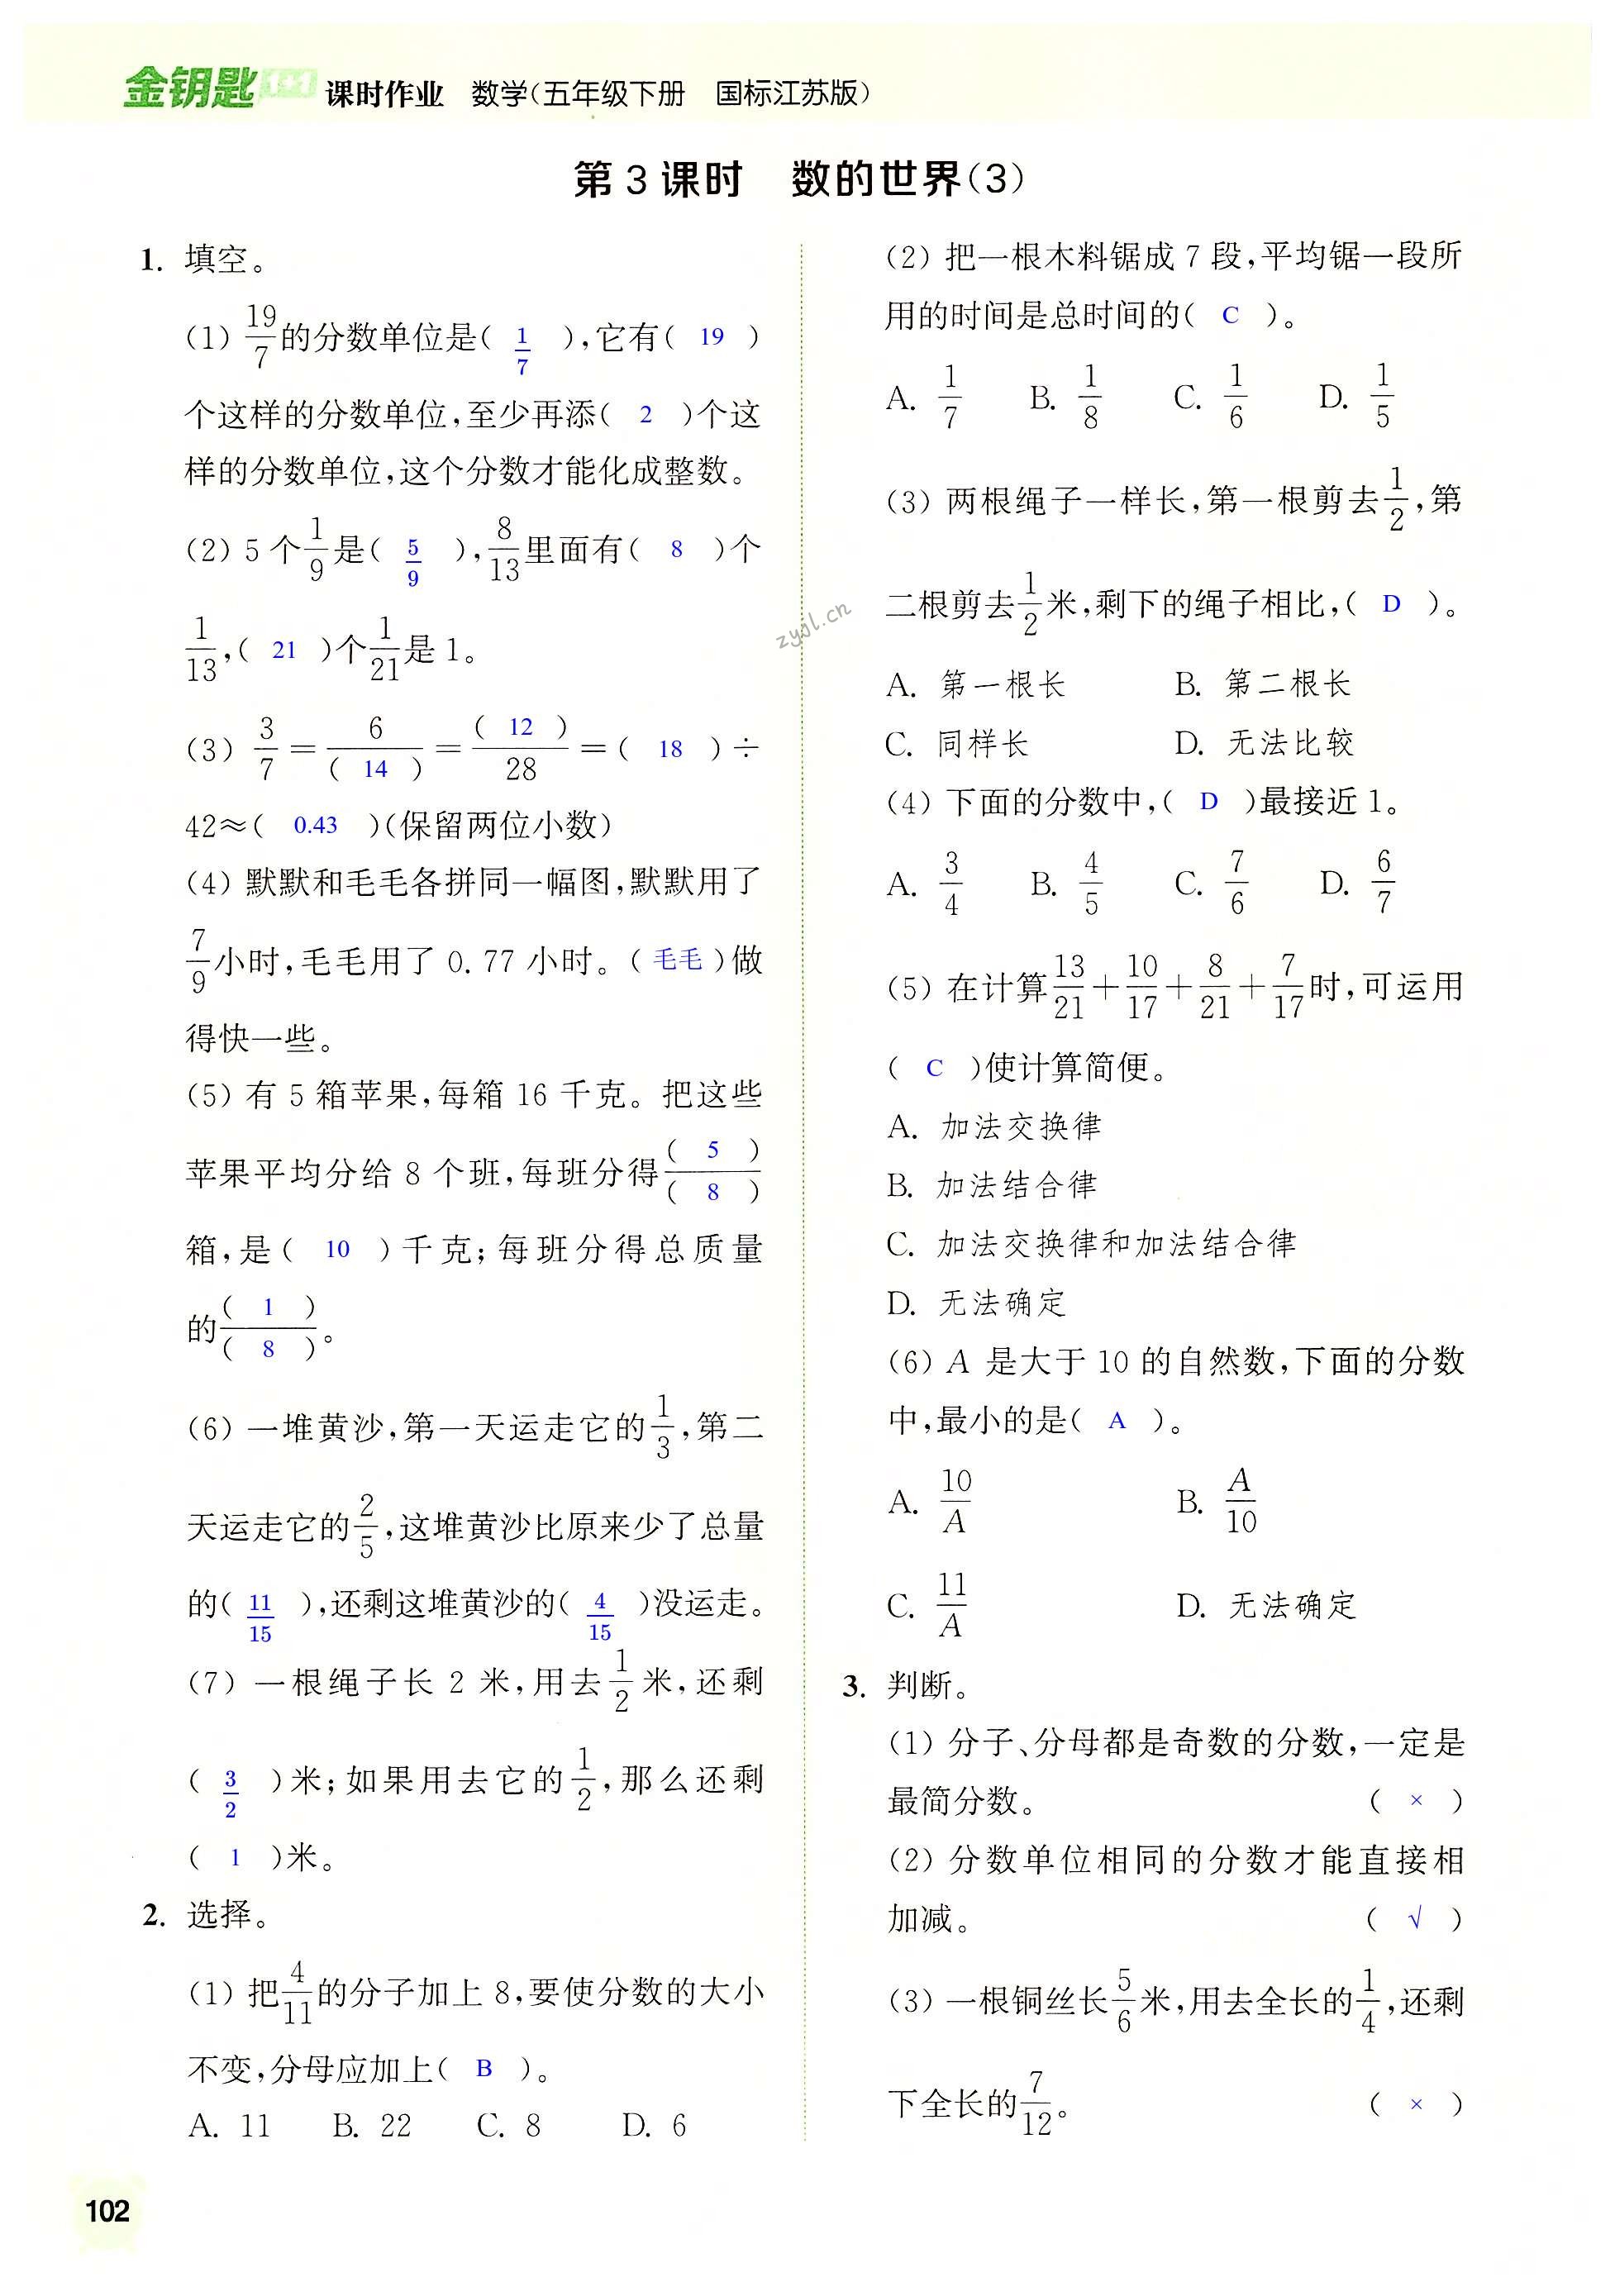 金钥匙1+1 课时作业 数学(五年级下册 国标江苏版)
第 3 课时 数的世界(3)
1. 填空。
(1) 19/7的分数单位是( 1/7 ),它有( 19 )
个这样的分数单位,至少再添( 2 )个这
样的分数单位,这个分数才能化成整数。
(2) 5 个1/9是( 5/9 ),8/13里面有( 8 )个
1/13,( 21 )个1/21是 1。
(3) 3/7=6/( 14 )=( 12 )/28=( 18 )÷
42≈( 0.43 )(保留两位小数)
(4) 默默和毛毛各拼同一幅图,默默用了
7/9小时,毛毛用了 0.77 小时。( 毛毛 )做
得快一些。
(5) 有 5 箱苹果,每箱 16 千克。把这些
苹果平均分给 8 个班,每班分得( 5 )/( 8 )
箱,是( 10 )千克;每班分得总质量
的( 1 )/( 8 )。
(6) 一堆黄沙,第一天运走它的1/3,第二
天运走它的2/5,这堆黄沙比原来少了总量
的( 11/15 ),还剩这堆黄沙的( 4/15 )没运走。
(7) 一根绳子长 2 米,用去1/2米,还剩
( 3/2 )米;如果用去它的1/2,那么还剩
( 1 )米。
2. 选择。
(1) 把4/11的分子加上 8,要使分数的大小
不变,分母应加上( B )。
A. 11 B. 22 C. 8 D. 6
(2) 把一根木料锯成 7 段,平均锯一段所
用的时间是总时间的( C )。
A. 1/7 B. 1/8 C. 1/6 D. 1/5
(3) 两根绳子一样长,第一根剪去1/2,第
二根剪去1/2米,剩下的绳子相比,( D )。
A. 第一根长 B. 第二根长
C. 同样长 D. 无法比较
(4) 下面的分数中,( D )最接近 1。
A. 3/4 B. 4/5 C. 7/6 D. 6/7
(5) 在计算13/21+10/17+8/21+7/17时,可运用
( C )使计算简便。
A. 加法交换律
B. 加法结合律
C. 加法交换律和加法结合律
D. 无法确定
(6) A 是大于 10 的自然数,下面的分数
中,最小的是( A )。
A. 10/A B. A/10
C. 11/A D. 无法确定
3. 判断。
(1) 分子、分母都是奇数的分数,一定是
最简分数。 ( × )
(2) 分数单位相同的分数才能直接相
加减。 ( √ )
(3) 一根铜丝长5/6米,用去全长的1/4,还剩
下全长的7/12。 ( × )
zyjl.cn
102